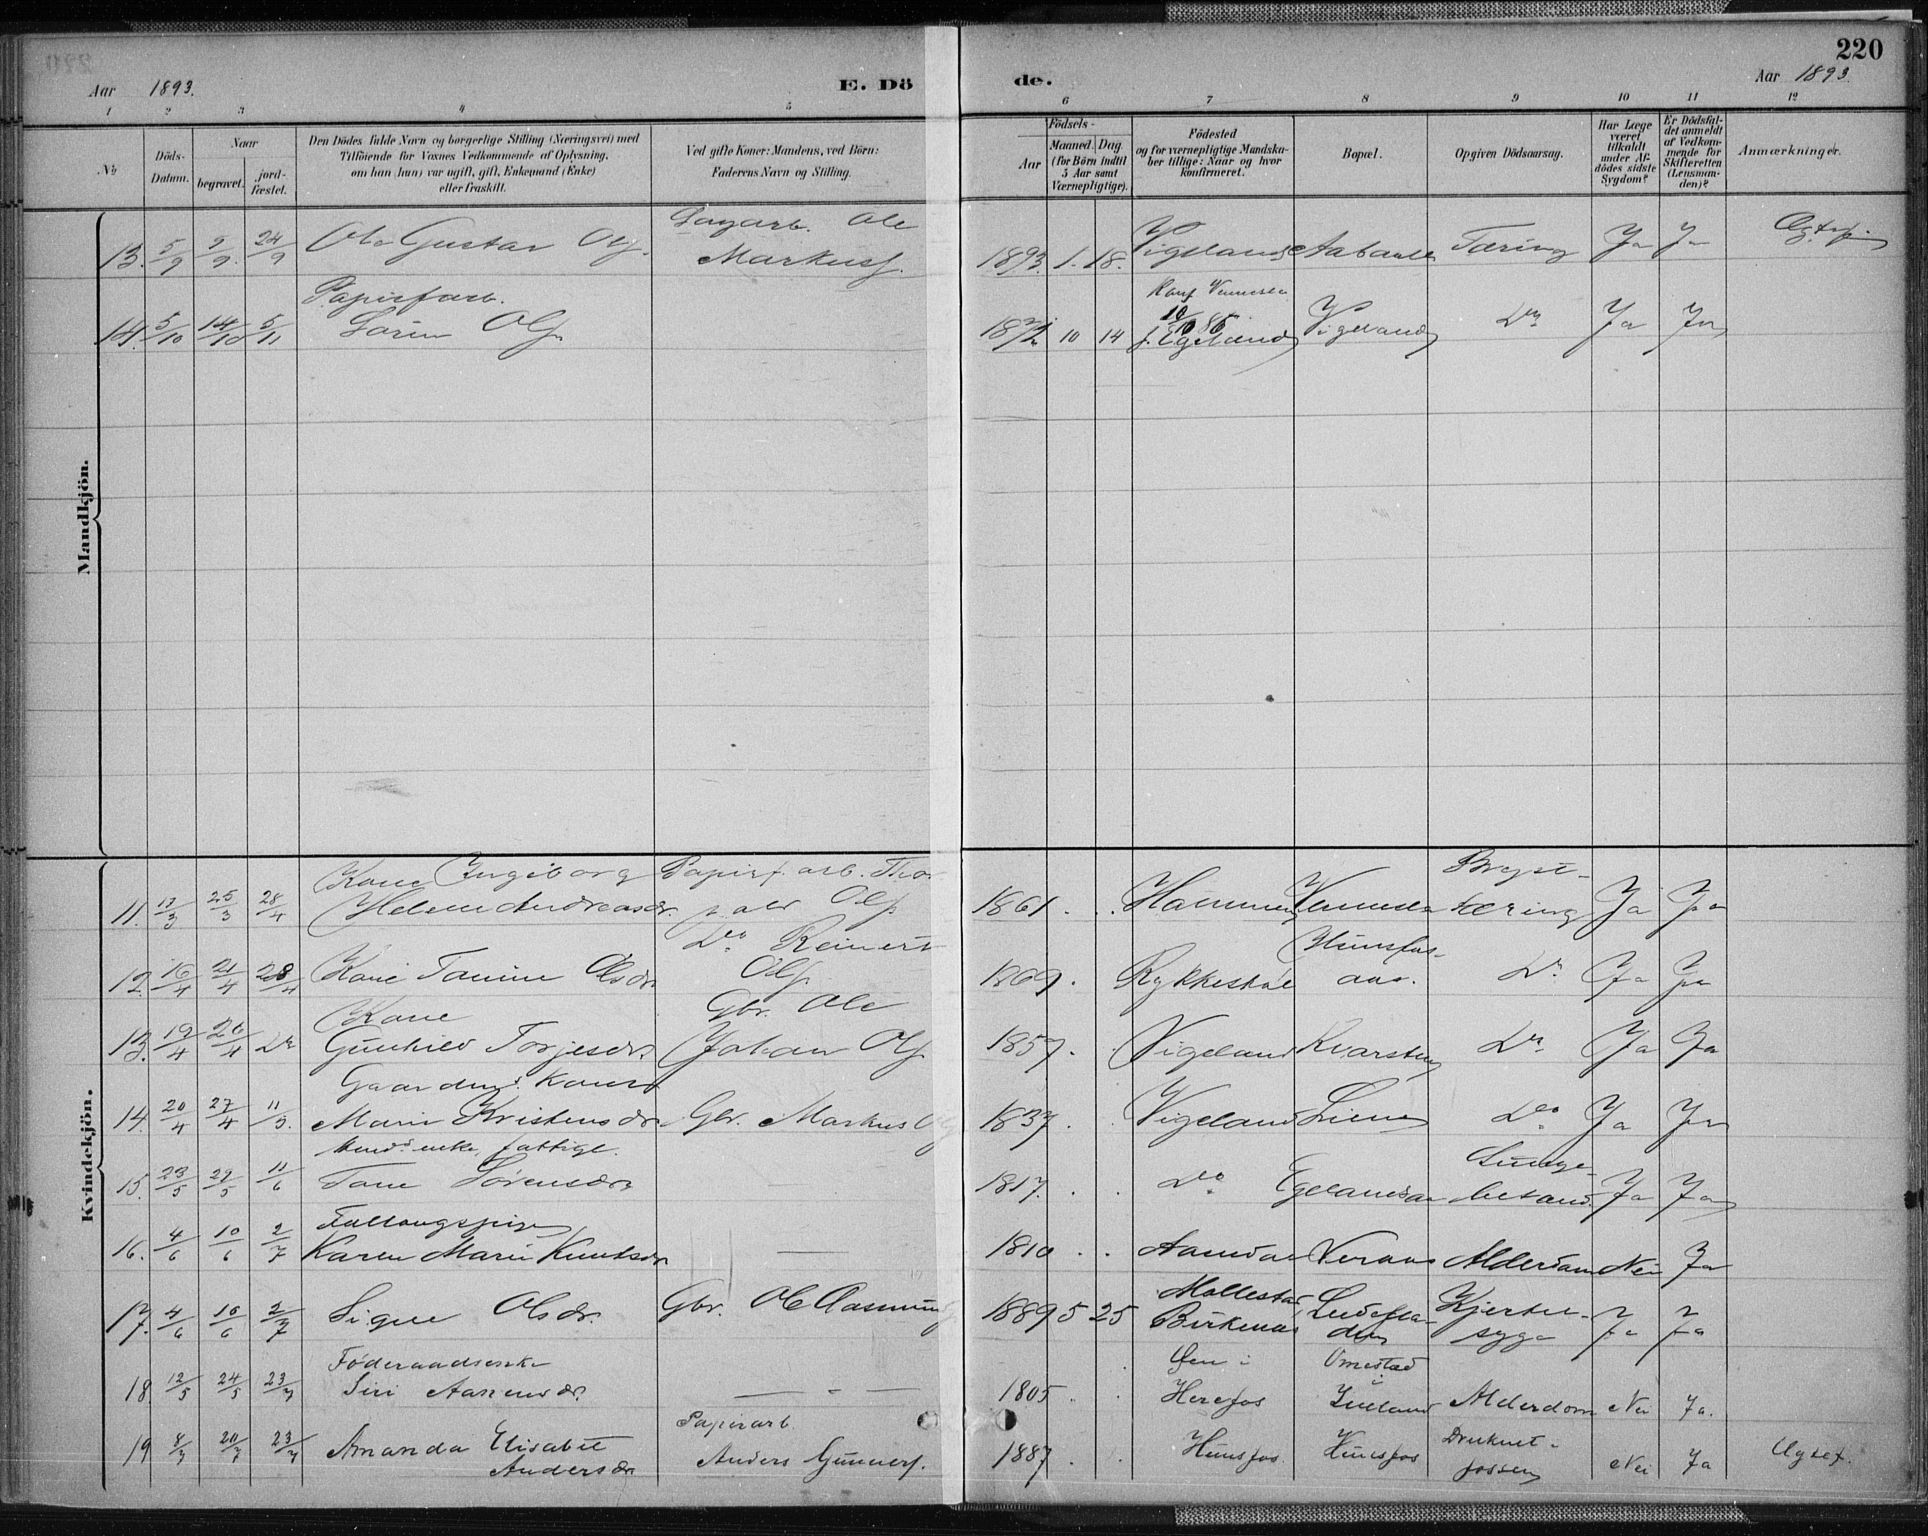 220
Aar 1893.
E. Dö
de.
Aar 1893.
1 2 3 4 5 6 7 8 9 10 11 12
No
Döds-Datum.
Naar
begravet.
jord-fæstet.
Den Dödes fulde Navn og borgerlige Stilling (Næringsvei) med
Tilföiende for Voxnes Vedkommende af Oplysning,
om han (hun) var ugift, gift, Enkemand (Enke)
eller fraskilt.
Ved gifte Koner: Mandens, ved Börn:
Faderens Navn og Stilling.
Födsels-
Aar
Maaned. Dag
(for Börn indtil
5 Aar samt
Værnepligtige).
Födested
og for værnepligtige Mandska-
ber tillige: Naar og hvor
konfirmeret.
Bopæl.
Opgiven Dödsaarsag.
Har Læge
været
tilkaldt
under Af-
dödes sidste
Sygdom?
Er Dödsfal-
det anmeldt
af Vedkom-
mende for
Skifteretten
(Lensman-
den)?
Anmærkninger.
Mandkjön.
13. 5/9 9/9 24/9 Ole Gustav Olsf. Dagarb. Ole Markusf. 1893. 1. 18. Vigeland Tæring Ja Ja Ægtef.
14. 5/10 14/10 5/11 Papirfarb. Sören Olsf. 10 14 Konf Vennesla f. Egeland Vigeland Do Ja Ja
Kvindekjön.
11. 25/3 28/4 Kone Ingeborg Helene Andreasdr. Papirf. arb. Olsf 1861. Vennesla Bryst-tæring Ja Ja
12. 16/4 21/4 28/4 Kone Tomine Olsdr. Do Reinert Olsf. 1869. Rykkestöl Hunsfos-aas. Do Ja Ja
13. 19/4 26/4 Do Kone Gunhild Torjesdr. Gbr. Ole Johan Olsf. 1857. Vigeland Kvarsten Do Ja Ja
14. 20/4 27/4 Gaardmds Kone Mari Kristensdr. Gbr. Markus 1837. Vigeland Lien Do Ja Ja
15. 23/5 29/5 11/6 enke, fattigl. Tone Sørensdr. — 1817. Do Ja Ja
16. 4/6 10/6 2/7 Karen Marie Knutsdr — 1810 Aamdal Alderdom Nei Ja
17. 4/6 10/6 2/7 Signe Olsdr. Gbr. Ole Aasmund 1889 5 25 Mollestad Birkenæs Hjerte-syge Ja Ja
18 12/5 24/5 23/7 Föderaadsenke Siri Aanensdr. — - — 1805 Øen i Herefos Omestad i Iveland Alderdom Nei Ja.
19 20/7 23/7 Amanda Elisabet Andersdr Papirarb. Anders Gunnerf. 1887. Hunsfos. Hunsfos Druknet i fossen Nei Ja Ægtef.